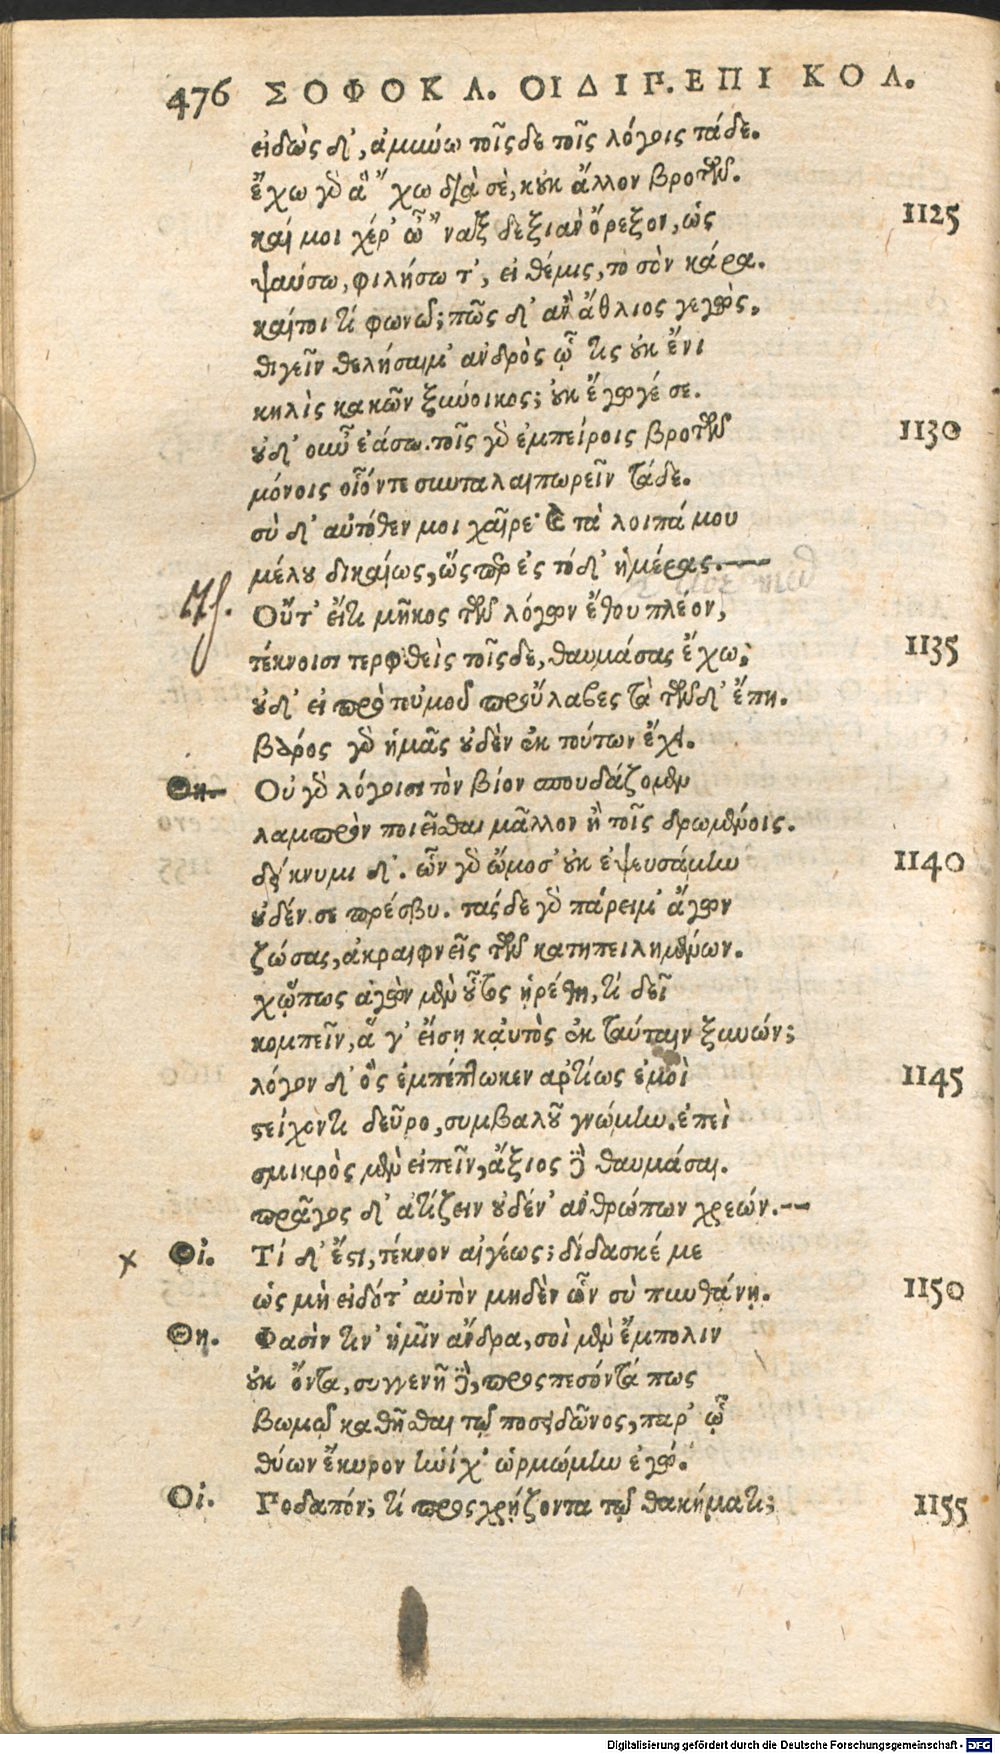 476 ΣΟΦΟΚΛ. ΟΙΔΙΠ. ΕΠΙ ΚΟΛ.
εἰδὼς δ', ἀμυνῶ τοῖςδε τοῖς λόγοις τάδε.
ἔχω γὰρ ἃ ' χω διὰ σὲ, κοὐκ ἄλλον βροτῶν.
καί μοι χέρ' ὦ ' ναξ δεξιὰν ὄρεξον, ὡς 1125
ψαύσω, φιλήσω τ', εἰ θέμις, τὸ σὸν κάρα.
καίτοι τί φωνῶ; πῶς δ' ἂν ἄθλιος γεγὼς,
θιγεῖν θελήσαιμ' ἀνδρὸς ᾧ τίς οὐκ ἔνι
κηλὶς κακῶν ξύνοικος; οὐκ ἔγωγέ σε.
οὐδ' οὖν ἐάσω. τοῖς γὰρ ἐμπείροις βροτῶν 1130
μόνοις οἷόντε συνταλαιπωρεῖν τάδε.
σὺ δ' αὐτόθεν μοι χαῖρε· καὶ τὰ λοιπά μου
μέλου δικαίως, ὥσπερ ἐς τόδ' ἡμέρας.
Οὔτ' εἴ τι μῆκος τῶν λόγων ἔθου πλέον,
τέκνοισι τερφθεὶς τοῖςδε, θαυμάσας ἔχω, 1135
οὐδ' εἰ πρὸ τοὐμοῦ προὔλαβες τὰ τῶνδ' ἔπη.
βάρος γὰρ ἡμᾶς οὐδὲν ἐκ τούτων ἔχει.
Θη. Οὐ γὰρ λόγοισι τὸν βίον σπουδάζομεν
λαμπρὸν ποιεῖσθαι μᾶλλον ἢ τοῖς δρωμένοις.
δείκνυμι δ'. ὧν γὰρ ὤμοσ' οὐκ ἐψευσάμην 1140
οὐδέν σε πρέσβυ. τάςδε γὰρ πάρειμ' ἄγων
ζώσας, ἀκραιφνεῖς τῶν κατηπειλημένων.
χᾤπως ἀγὼν μὲν οὗτος ᾑρέθη, τί δεῖ
κομπεῖν, ἅ γ' εἴσῃ καὐτὸς ἐκ ταύταιν ξυνών;
λόγον δ' ὃς ἐμπέπτωκεν ἀρτίως ἐμοὶ 1145
στείχοντι δεῦρο, συμβαλοῦ γνώμην. ἐπεὶ
σμικρὸς μὲν εἰπεῖν, ἄξιος δὲ θαυμάσαι.
πρᾶγος δ' ἀτίζειν οὐδέν' ἀνθρώπων χρεών.
x Οἰ. Τί δ' ἔστι, τέκνον αἰγέως; δίδασκέ με
ὡς μὴ εἰδότ' αὐτὸν μηδὲν ὧν σὺ πυνθάνῃ. 1150
Θη. Φασὶν τιν' ἡμῖν ἄνδρα, σοὶ μὲν ἔμπολιν
οὐκ ὄντα, συγγενῆ δὲ, προςπεσόντά πως
βωμῷ καθῆσθαι τῷ ποσειδῶνος, παρ' ᾧ
θύων ἔκυρον ἡνίχ' ὡρμώμην ἐγώ.
Οἰ. Ποδαπόν; τί προςχρῄζοντα τῷ θακήματι; 1155
Digitalisierung gefördert durch die Deutsche Forschungsgemeinschaft - DFG